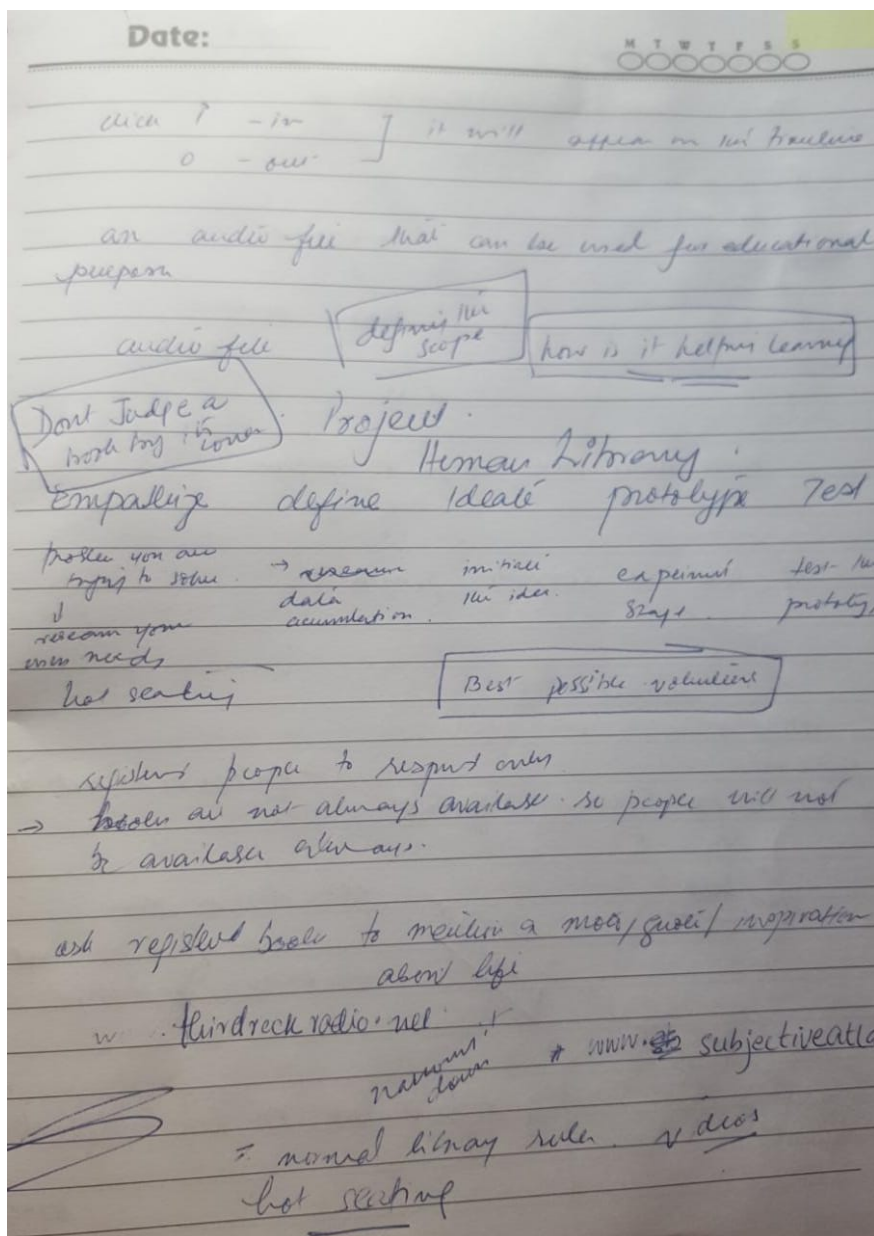 Date:
M T W T F S S
click i - in ] it will appear on the timeline
o - out
an audio file that can be used for educational
purpose
audio file
defining the
scope
how is it helping learning
Dont Judge a
book by its cover.
Project.
Human Library.
Empathize define Ideate prototype Test
problem you are
trying to solve
→ research
data
acumulation.
initiate
the idea.
experiment
stage
test the
prototyp
↓
research your
users needs
hot seating
Best possible volunteers
registered people to respond only
→ books are not always available. so people will not
be available always.
ask registered books to mention a moto/quote/inspiration
about life
w thirdreckradio.net
narrowing
down
* www. subjectiveatla
= normal library rules. videos
hot seating